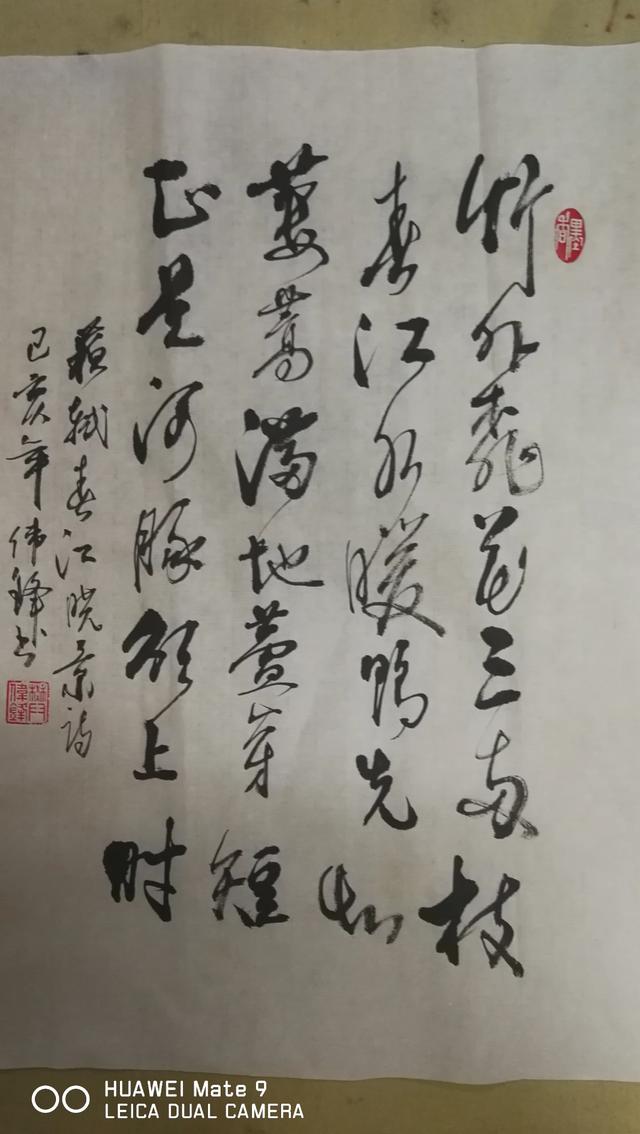 竹外桃花三两枝
春江水暖鸭先知
蒌蒿满地蘆芽短
正是河豚欲上时
苏轼春江晓景诗
己亥年伟锋书
HUAWEI Mate 9
LEICA DUAL CAMERA